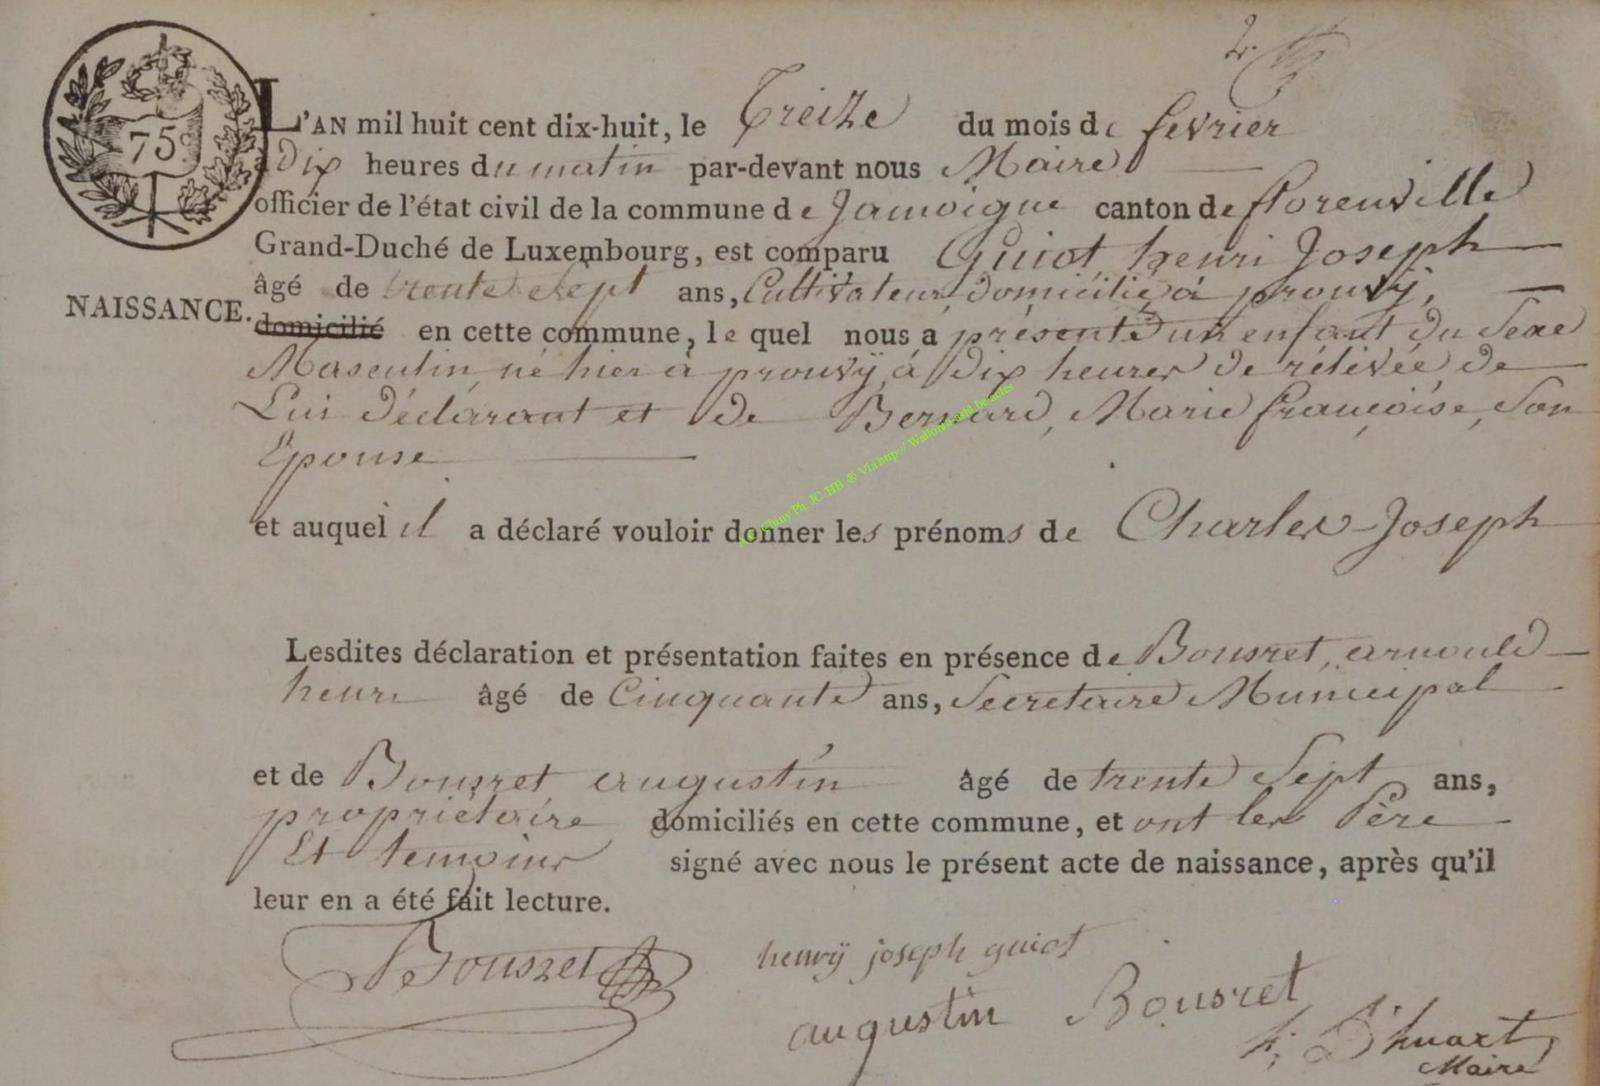 75
L'AN mil huit cent dix-huit, le Treize du mois de fevrier
a Dix heures du matin par-devant nous Maire
officier de l'état civil de la commune de Jamoigne canton de florenville
Grand-Duché de Luxembourg, est comparu Guiot henri Joseph
âgé de trente sept ans, Cultivateur domicilié à prouvÿ,
NAISSANCE.
domicilié en cette commune, le quel nous à présenté un enfant du Sexe
Masculin né hier à prouvÿ, à Dix heures de rélevée, de
Lui déclarant et de Bernard, Marie françoise, Son
Epouse
et auquel il a déclaré vouloir donner les prénoms de Charles-Joseph
Lesdites déclaration et présentation faites en présence de Bousret, arnould
henri âgé de Cinquante ans, Secretaire Municipal
et de Bousret augustin âgé de trente Sept ans,
propriétaire domiciliés en cette commune, et ont les Père
Et temoins signé avec nous le présent acte de naissance, après qu'il
leur en a été fait lecture.
Bousret
henrÿ joseph guiot
augustin Bousret
h. D'huart
Maire